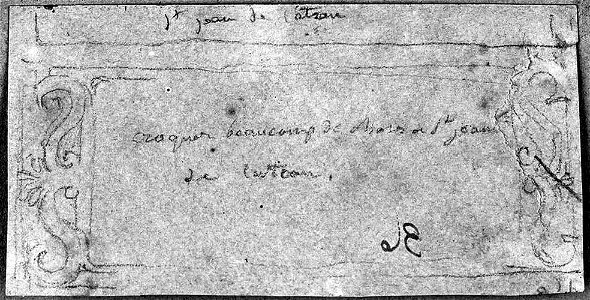 St jean de Latran
croquer beaucoup de choses a St jean
de Latran.